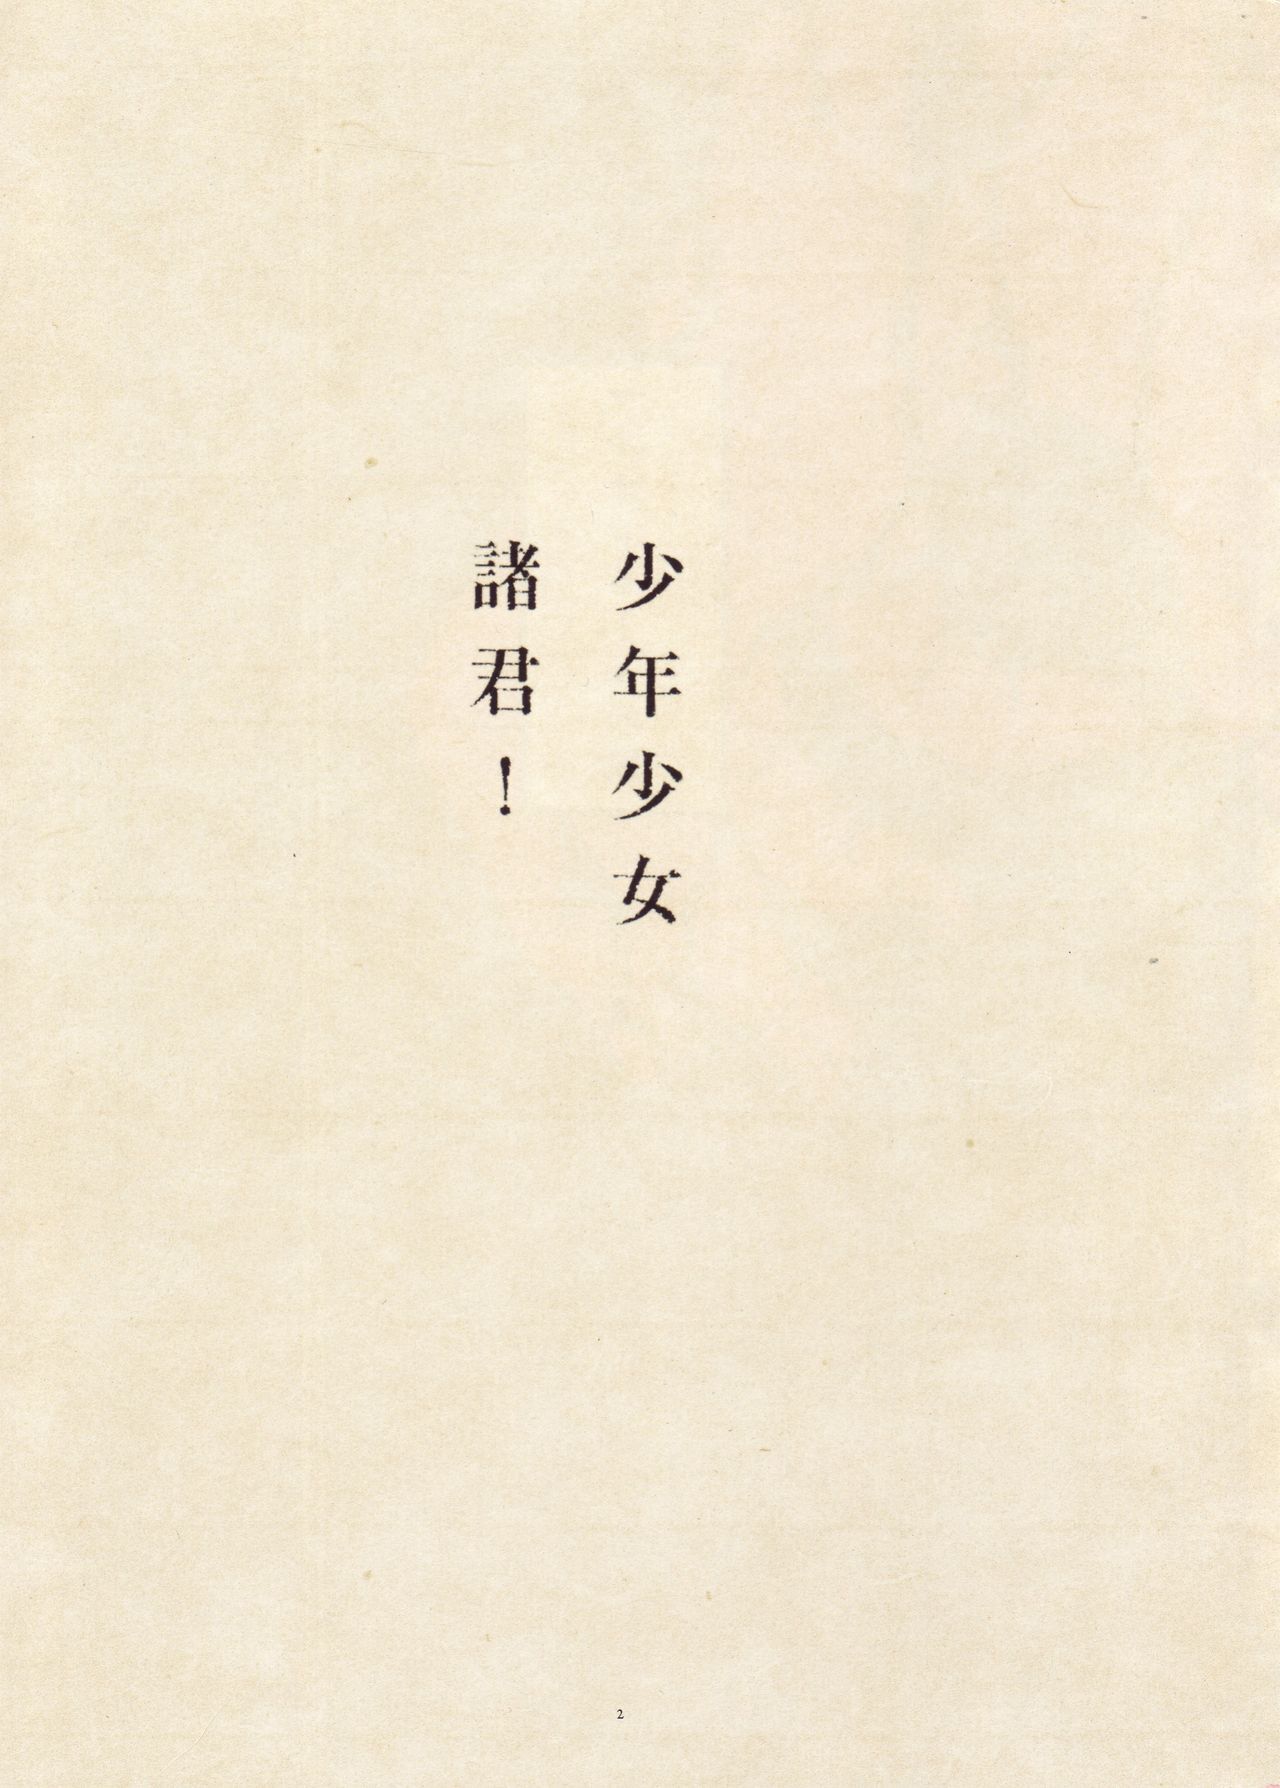 少年少女
諸君！
2